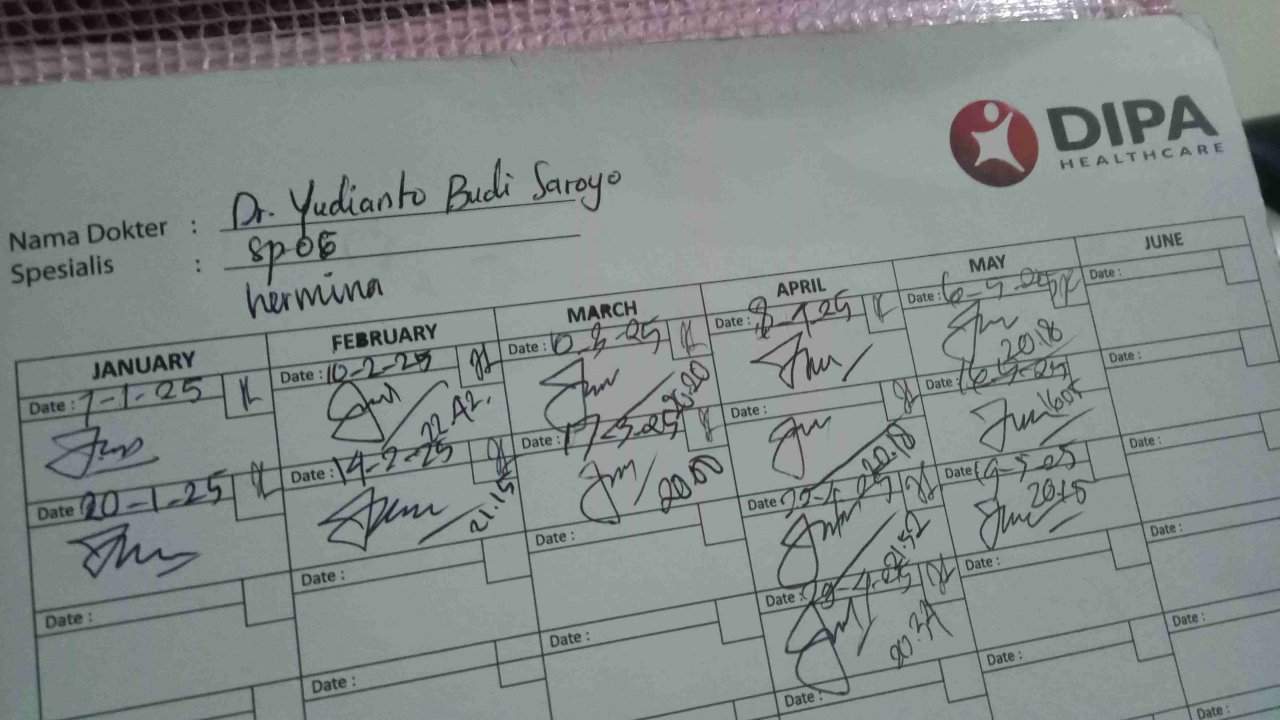 DIPA
HEALTHCARE
Nama Dokter : Dr. Yudianto Budi Saroyo
Spesialis : SpOG
hermina
JANUARY FEBRUARY MARCH APRIL MAY JUNE
Date : 7-1-25 Date : 10-2-25 Date : 10-3-25 Date : 8-4-25 Date : 6-5-25 Date :
22.42. 20.20 20.18
Date 20-1-25 Date : 14-2-25 Date : 17-3-25 Date : Date : 16-5-25 Date :
21.15 20.00 20.18
Date : Date : Date : Date : 22-4-25 Date 19-5-25 Date :
21.52 20.15
Date : Date : Date : 29-4-25 Date : Date :
Date : Date : Date : Date :